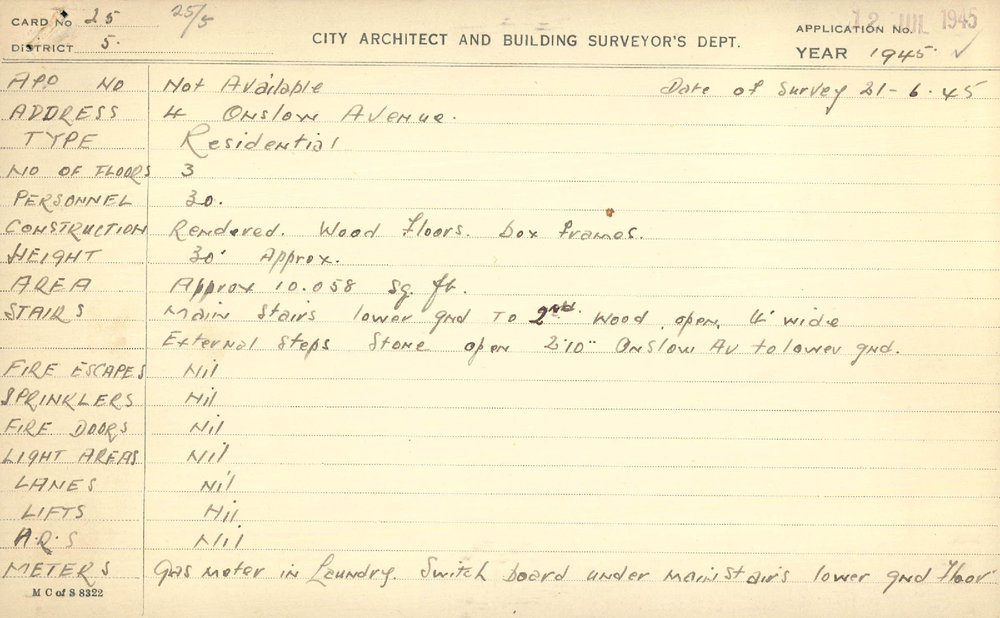 CARD No 25 25/5 12 JUL 1945
DISTRICT 5. CITY ARCHITECT AND BUILDING SURVEYOR'S DEPT. APPLICATION No.
YEAR 1945 ✓
APP NO Not Available Date of Survey 21-6-45
ADDRESS 4 Onslow Avenue.
TYPE Residential
NO OF FLOORS 3
PERSONNEL 30.
CONSTRUCTION Rendered. Wood Floors. Box Frames.
HEIGHT 30' Approx.
AREA Approx 10.058 sq ft.
STAIRS Main Stairs lower gnd To 2nd. Wood open. 4' wide
External Steps Stone open 2'10" Onslow Av to lower gnd.
FIRE ESCAPES Nil
SPRINKLERS Nil
FIRE DOORS Nil
LIGHT AREAS Nil
LANES Nil
LIFTS Nil
A.R.S Nil
METERS Gas Meter in Laundry. Switch board under main stairs lower gnd Floor
M C of S 8322